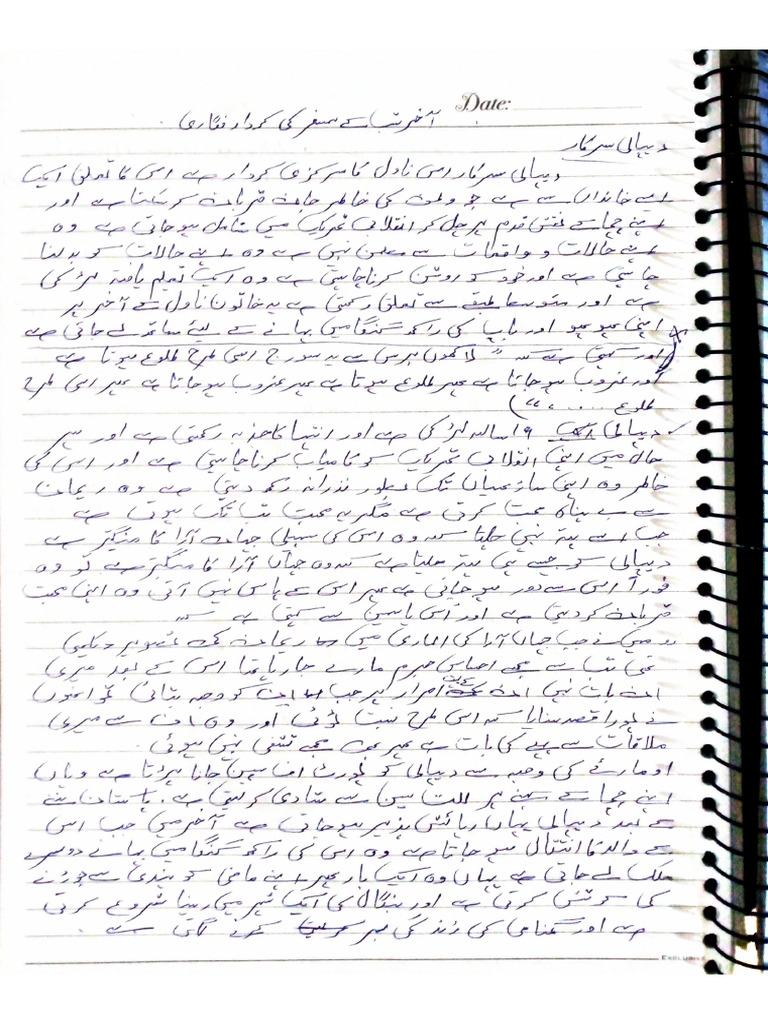 Date:
آخر شب کے ہمسفر کی کردار نگاری
دیپالی سرکار
دیپالی سرکار اس ناول کا مرکزی کردار ہے اس کا تعلق ایک
ایسے خاندان سے ہے جو وطن کی خاطر جان قربان کر سکتا ہے اور
اپنے چچا کے نقش قدم پر چل کر انقلابی تحریک میں شامل ہو جاتی ہے وہ
اپنے حالات و واقعات سے مطمن نہیں ہے وہ اپنے حالات کو بدلنا
چاہتی ہے اور خود کو روشن کرنا چاہتی ہے وہ ایک تعلیم یافتہ لڑکی
ہے اور متوسط طبقے سے تعلق رکھتی ہے یہ خاتون ناول کے آخر پر
اپنی پھوپھو اور بابا کی راکھ گنگا میں بہانے کے لیئے ساتھ لے جاتی ہے
(اور کہتی ہے کہ " لاکھوں برس سے یہ سورج اسی طرح طلوع ہوتا ہے
اور غروب ہو جاتا ہے پھر طلوع ہوتا ہے پھر غروب ہو جاتا ہے پھر اسی طرح
طلوع ..... ")
دیپالی ایک ١٩ سالہ لڑکی ہے اور انتہا کا جذبہ رکھتی ہے اور ہر
حال میں اپنی انقلابی تحریک کو کامیاب کرنا چاہتی ہے اور اس کی
خاطر وہ اپنی ساڑھیاں تک بطور نذرانہ رکھ دیتی ہے وہ ریحان
سے بے پناہ محبت کرتی ہے مگر یہ محبت تب تک ہوتی ہے
جب اسے پتہ نہیں چلتا کہ وہ اس کی سہیلی جہان آرا کا منگیتر ہے
دیپالی کو جیسے ہی پتہ چلتا ہے کہ وہ جہاں آرا کا منگیتر ہے تو وہ
فوراً اس سے دور ہو جاتی ہے پھر اس کے پاس نہیں آتی وہ اپنی محبت
قربان کر دیتی ہے اور اس یاسمین سے کہتی ہے کہ
" میں نے جب جہاں آرا کی الماری میں ریحان کی تصویر دیکھی
تھی تب سے مجھے احساس جرم مارے جا رہا تھا اس کے بعد میری
ان بات نہیں اصرار پر جب ان کو وجہ بتائی تو انھوں
نے پورا قصہ سنایا کہ اس طرح نسبت ٹوٹی اور وہ ان سے میری
ملاقات سے پہلے کی بات ہے پھر بھی مجھے تشفی نہیں ہوئی .
اوما رائے کی وجہ سے دیپالی کو پورٹ آف سپین جانا پڑتا ہے وہاں
اپنے چچا کے کہنے پر للت سین سے شادی کر لیتی ہے . پاکستان بننے
کے بعد دیپالی یہاں رہائش پذیر ہو جاتی ہے آخر میں جب اس
کے والد کا انتقال ہو جاتا ہے وہ اس کی راکھ گنگا میں بہانے دوسرے
ملک لے جاتی ہے یہاں وہ ایک بار پھر اپنے ماضی کو سے جوڑنے
کی کوشش کرتی ہے اور بنگال کی ایک شہر میں رہنا شروع کرتی
ہے اور گمنامی کی زندگی بسر کرنے لگتی ہے .